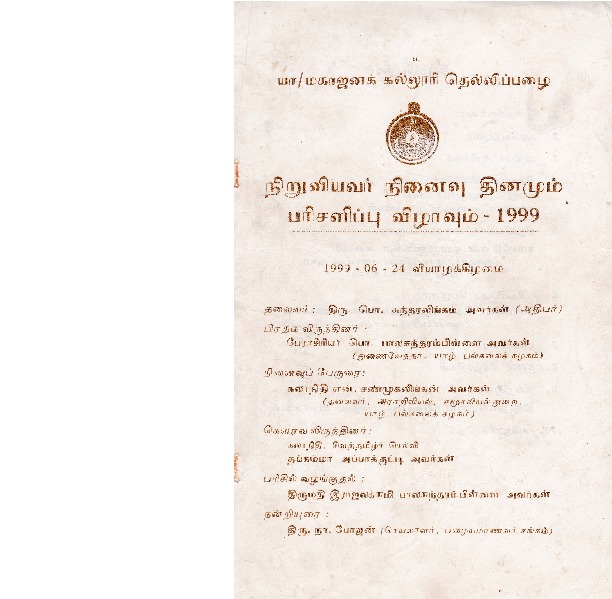 யா/மகாஜனக் கல்லூரி தெல்லிப்பழை
நிறுவியவர் நினைவு தினமும்
பரிசளிப்பு விழாவும் - 1999
1999 - 06 - 24 வியாழக்கிழமை
தலைவர் : திரு பொ. சுந்தரலிங்கம் அவர்கள் (அதிபர்)
பிரதம விருந்தினர் :
பேராசிரியர் பொ. பாலசுந்தரம்பிள்ளை அவர்கள்
(துணைவேந்தர், யாழ் பல்கலைக் கழகம்)
நினைவுப் பேருரை:
கலாநிதி என். சண்முகலிங்கன் அவர்கள்
(தலைவர், அரசறிவியல், சமூகவியல் துறை,
யாழ் பல்கலைக் கழகம்)
கௌரவ விருந்தினர்:
கலாநிதி, சிவத்தமிழ்ச் செல்வி
தங்கம்மா அப்பாக்குட்டி அவர்கள்
பரிசில் வழங்குதல் :
திருமதி இராஜலக்சுமி பாலசுந்தரம்பிள்ளை அவர்கள்
நன்றியுரை :
திரு. நா. போஜன் (செயலாளர், பழையமாணவர் சங்கம்)